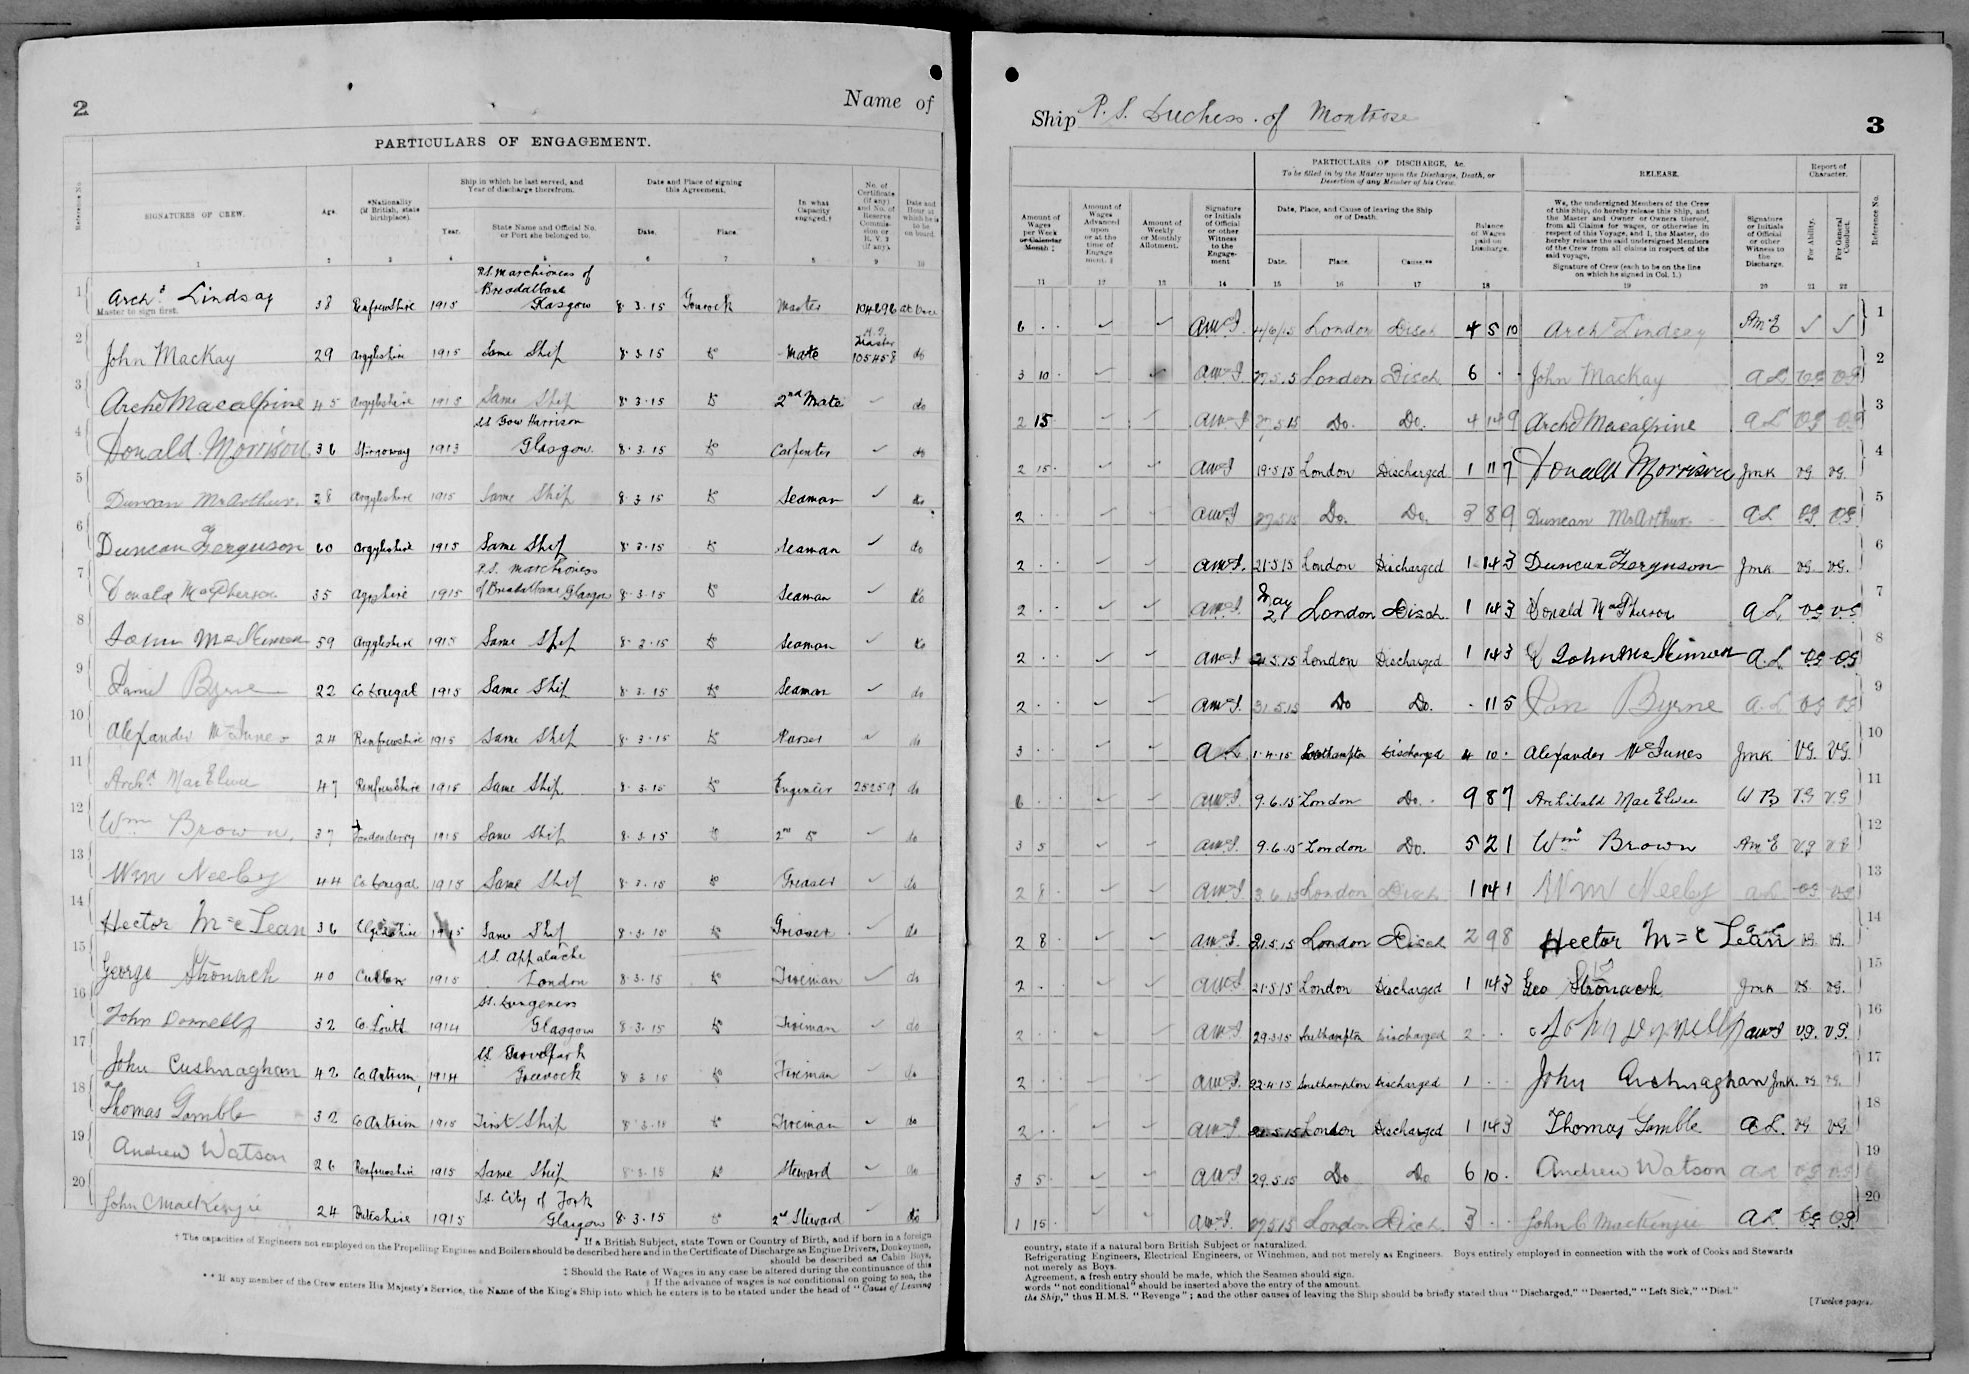 2
Name of
PARTICULARS OF ENGAGEMENT.
Reference No.
SIGNATURES OF CREW.
Age.
*Nationality (if British, state birthplace).
Ship in which he last served, and Year of discharge therefrom.
Year.
State Name and Official No. or Port she belonged to.
Date and Place of signing this Agreement.
Date.
Place.
In what Capacity engaged.†
No. of Certificate (if any) and No. of Reserve Commission or R.V.2 (if any).
Date and Hour at which he is to be on board.
1 2 3 4 5 6 7 8 9 10
1 Archd Lindsay 38 Renfrewshire 1915 P.S. Marchioness of Breadalbane Glasgow 8.3.15 Gourock Master 104696 at once
Master to sign first.
2 John MacKay 29 Argyleshire 1915 Same Ship 8.3.15 do Mate Master 105458 do
3 Archd Macalpine 45 Argyleshire 1915 Same Ship 8.3.15 do 2nd Mate ✓ do
4 Donald Morrison 36 Stornoway 1913 SS Gow Harrison Glasgow 8.3.15 do Carpenter ✓ do
5 Duncan McArthur 28 Argyleshire 1915 Same Ship 8.3.15 do Seaman ✓ do
6 Duncan Ferguson 60 Argyleshire 1915 Same Ship 8.3.15 do Seaman ✓ do
7 Donald MacPherson 35 1915 P.S. Marchioness of Breadalbane Glasgow 8.3.15 do Seaman ✓ do
8 John McKinnon 59 Argyleshire 1915 Same Ship 8.3.15 do Seaman ✓ do
9 Daniel Byrne 22 Co Donegal 1915 Same Ship 8.3.15 do Seaman ✓ do
10 Alexander McInnes 24 Renfrewshire 1915 Same Ship 8.3.15 do Purser ✓ do
11 Archd MacElwee 47 Renfrewshire 1915 Same Ship 8.3.15 do Engineer 25259 do
12 Wm Brown 37 Londonderry 1915 Same Ship 8.3.15 do 2nd do ✓ do
13 Wm Neeley 44 Co Donegal 1915 Same Ship 8.3.15 do Greaser ✓ do
14 Hector McLean 36 1915 Same Ship 8.3.15 do Greaser ✓ do
15 George Stronach 40 Cullen 1915 SS. Appalache London 8.3.15 do Fireman ✓ do
16 John Donnelly 32 Co Louth 1914 SS. Dungeness Glasgow 8.3.15 do Fireman ✓ do
17 John Cushnaghan 42 Co Antrim 1914 SS Greenock 8.3.15 do Fireman ✓ do
18 Thomas Gamble 32 Co Antrim 1915 First Ship 8.3.15 do Fireman ✓ do
19 Andrew Watson 26 Renfrewshire 1915 Same Ship 8.3.15 do Steward ✓ do
20 John C MacKenzie 24 Buteshire 1915 S.S. City of York Glasgow 8.3.15 do 2nd Steward ✓ do
* If a British Subject, state Town or Country of Birth, and if born in a foreign
† The capacities of Engineers not employed on the Propelling Engines and Boilers should be described here and in the Certificate of Discharge as Engine Drivers, Donkeymen,
should be described as Cabin Boys,
‡ Should the Rate of Wages in any case be altered during the continuance of this
‖ If the advance of wages is not conditional on going to sea, the
** If any member of the Crew enters His Majesty's Service, the Name of the King's Ship into which he enters is to be stated under the head of "Cause of Leaving
Ship P.S. Duchess of Montrose
3
Amount of Wages per Week or Calendar Month ‡
Amount of Wages Advanced upon or at the time of Engagement. ‖
Amount of Weekly or Monthly Allotment.
Signature or Initials of Official or other Witness to the Engagement
PARTICULARS OF DISCHARGE, &c.
To be filled in by the Master upon the Discharge, Death, or Desertion of any Member of his Crew.
Date, Place, and Cause of leaving the Ship or of Death.
Date.
Place.
Cause.**
Balance of Wages paid on Discharge.
RELEASE.
We, the undersigned Members of the Crew of this Ship, do hereby release this Ship, and the Master and Owner or Owners thereof, from all Claims for wages, or otherwise in respect of this Voyage, and I, the Master, do hereby release the said undersigned Members of the Crew from all claims in respect of the said voyage.
Signature of Crew (each to be on the line on which he signed in Col. 1.)
Signature or Initials of Official or other Witness to the Discharge.
Report of Character.
For Ability.
For General Conduct.
Reference No.
11 12 13 14 15 16 17 18 19 20 21 22
6 . . ✓ ✓ 4/6/15 London Disch 4 5 10 Archd Lindsay AmE ✓ ✓ 1
3 10 . ✓ ✓ 27.5.15 London Disch. 6 . . John MacKay A.L VG VG 2
2 15 . ✓ ✓ 27.5.15 Do. Do. 4 14 9 Archd Macalpine A L VG VG 3
2 15 . ✓ ✓ 19.5.15 London Discharged 1 11 7 Donald Morrison JMK VG. VG. 4
2 . . ✓ ✓ 27.5.15 Do. Do. 3 8 9 Duncan McArthur A L VG. VG. 5
2 . . ✓ ✓ 21.5.15 London Discharged 1 14 3 Duncan Ferguson JMK VG. VG. 6
2 . . ✓ ✓ May 21 London Disch. 1 14 3 Donald MacPherson A L. VG VG 7
2 . . ✓ ✓ 21.5.15 London Discharged 1 14 3 John McKinnon A.L VG VG 8
2 . . ✓ ✓ 31.5.15 Do Do. . 11 5 Dan Byrne A.L VG VG 9
3 . . ✓ ✓ A L 1.4.15 Southampton Discharged 4 10 . Alexander McInnes JMK. VG. VG. 10
6 . . ✓ ✓ 9.6.15 London Do. 9 8 7 Archibald MacElwee W B VG VG 11
3 5 ✓ ✓ 9.6.15 London Do. 5 2 1 Wm Brown AmE VG VG 12
2 8 . ✓ ✓ 3.6.15 London Disch 1 14 1 Wm Neeley A.L. VG VG 13
2 8 . ✓ ✓ 21.5.15 London Disch 2 9 8 Hector McLean VG. VG. 14
2 . . ✓ ✓ 21.5.15 London Discharged 1 14 3 Geo Stronach JMK VG. VG. 15
2 . . ✓ ✓ 29.3.15 Southampton Discharged 2 . . John Donnelly VG. VG. 16
2 . . ✓ ✓ 22.4.15 Southampton Discharged 1 . . John Cushnaghan JMK. VG VG. 17
2 . . ✓ ✓ 21.5.15 London Discharged 1 14 3 Thomas Gamble A L. VG VG 18
3 5 . ✓ ✓ 29.5.15 Do Do 6 10 . Andrew Watson A L VG VG 19
1 15 . ✓ ✓ 27.5.15 London Disch. 3 . . John C MacKenzie A L VG. VG. 20
country, state if a natural born British Subject or naturalized.
Refrigerating Engineers, Electrical Engineers, or Winchmen, and not merely as Engineers. Boys entirely employed in connection with the work of Cooks and Stewards
not merely as Boys.
Agreement, a fresh entry should be made, which the Seamen should sign.
words "not conditional" should be inserted above the entry of the amount.
the Ship," thus H.M.S. "Revenge"; and the other causes of leaving the Ship should be briefly stated thus "Discharged," "Deserted," "Left Sick," "Died."
[Twelve pages.